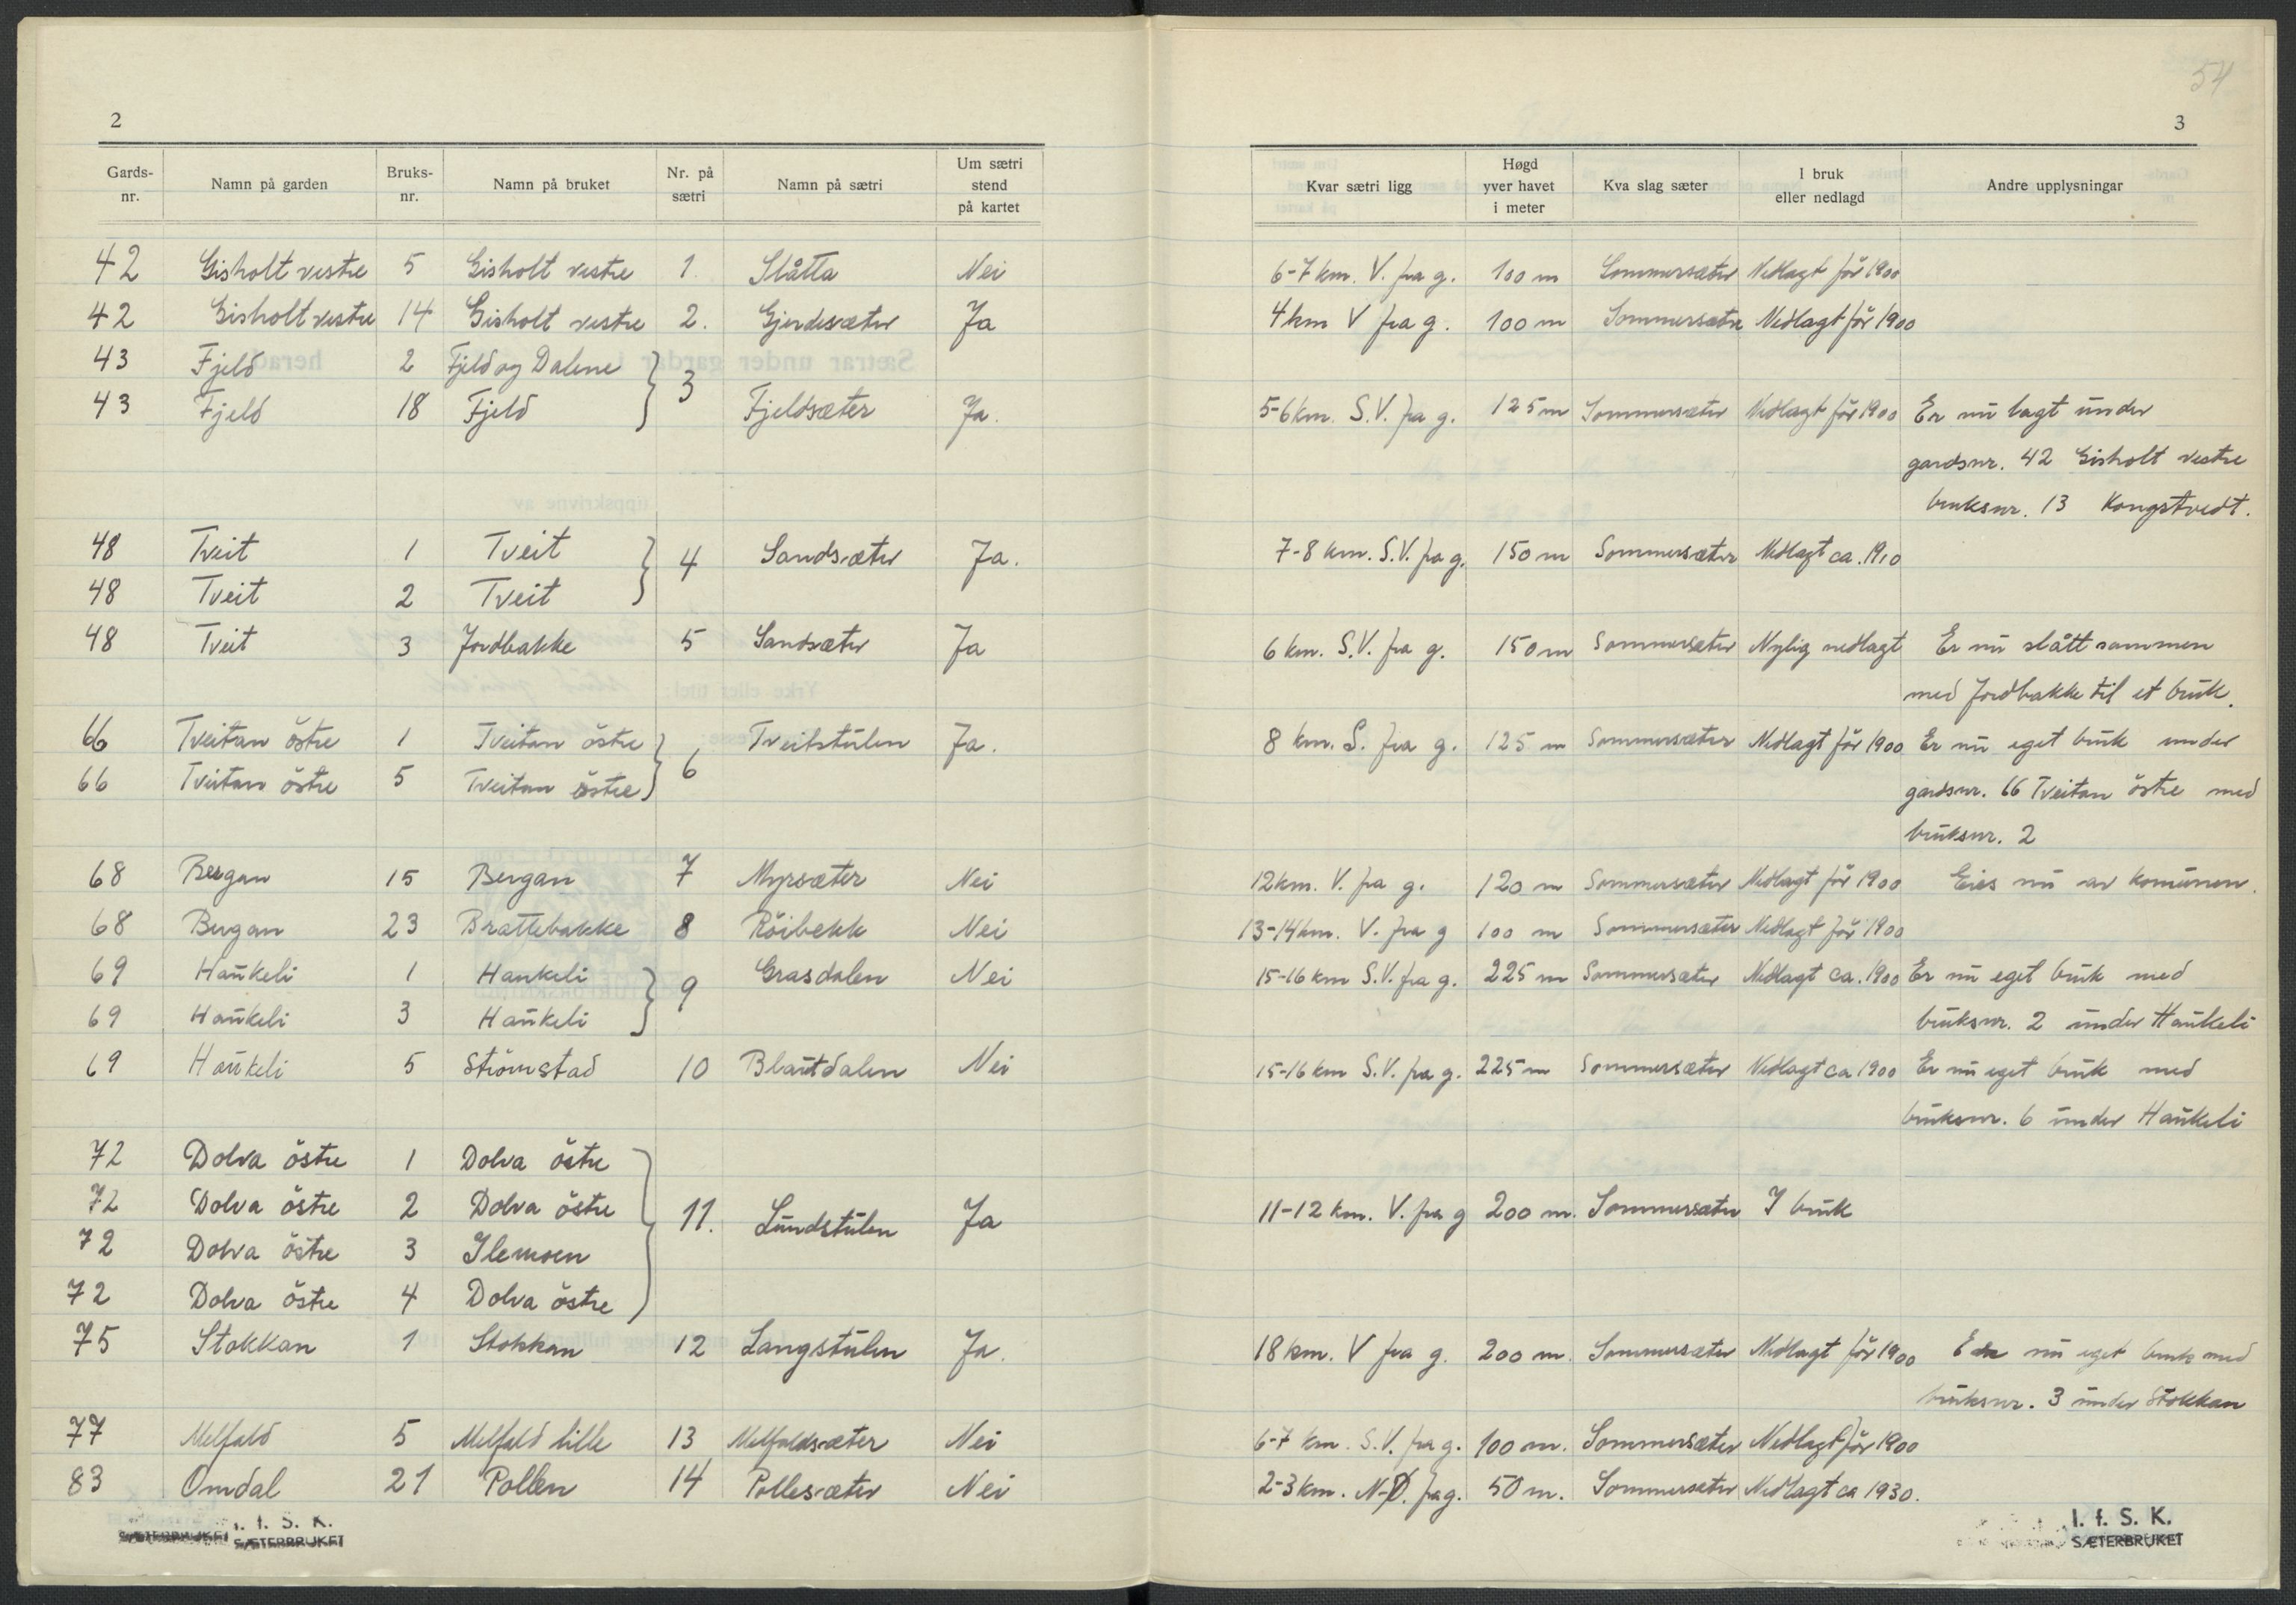 54
2
3
Gards-nr. Namn på garden Bruks-nr. Namn på bruket Nr. på sætri Namn på sætri Um sætri stend på kartet Kvar sætri ligg Høgd yver havet i meter Kva slag sæter I bruk eller nedlagd Andre upplysningar
42 Gisholt vestre 5 Gisholt vestre 1. Slåtta Nei 6-7 km. V. fra g. 100 m Sommersæter Nedlagt før 1900
42 Gisholt vestre 14 Gisholt vestre 2. Gjerdesæter Ja 4 km V fra g. 100 m Sommersæter Nedlagt før 1900
43 Fjeld 2 Fjeld og Dalene } 3
43 Fjeld 18 Fjeld Fjeldsæter Ja. 5-6 km. S.V. fra g. 125 m Sommersæter Nedlagt før 1900 Er nu lagt under
gardsnr. 42 Gisholt vestre
bruksnr. 13 Kongstvedt.
48 Tveit 1 Tveit } 4 Sandsæter Ja. 7-8 km. S.V. fra g. 150 m Sommersæter Nedlagt ca. 1910
48 Tveit 2 Tveit
48 Tveit 3 Jordbakke 5 Sandsæter Ja 6 km. S.V. fra g. 150 m Sommersæter Nylig nedlagt Er nu slått sammen
med Jordbakke til et bruk.
66 Tveitan östre 1 Tveitan östre } 6 Tveitstulen Ja. 8 km. S. fra g. 125 m Sommersæter Nedlagt før 1900 Er nu eget bruk under
66 Tveitan östre 5 Tveitan östre gardsnr. 66 Tveitan östre med
bruksnr. 2
68 Bergan 15 Bergan 7 Myrsæter Nei 12 km. V. fra g. 120 m Sommersæter Nedlagt før 1900 Eies nu av komunen.
68 Bergan 23 Brattebakke 8 Röibekk Nei 13-14 km. V. fra g 100 m Sommersæter Nedlagt før 1900
69 Haukeli 1 Haukeli } 9 Grasdalen Nei 15-16 km S.V. fra g. 225 m Sommersæter Nedlagt ca. 1900 Er nu eget bruk med
69 Haukeli 3 Haukeli bruksnr. 2 under Haukeli
69 Haukeli 5 Strömstad 10 Blautdalen Nei 15-16 km S.V. fra g. 225 m Sommersæter Nedlagt ca 1900 Er nu eget bruk med
bruksnr. 6 under Haukeli
72 Dolva östre 1 Dolva östre
72 Dolva östre 2 Dolva östre } 11. Lundstulen Ja 11-12 km. V. fra g 200 m. Sommersæter I bruk
72 Dolva östre 3 Ilemoen
72 Dolva östre 4 Dolva östre
75 Stokkan 1 Stokkan 12 Langstulen Ja. 18 km. V fra g. 200 m. Sommersæter Nedlagt før 1900 Er nu eget bruk med
bruksnr. 3 under Stokkan
77 Melfald 5 Melfald lille 13 Melfaldsæter Nei 6-7 km. S.V. fra g. 100 m. Sommersæter Nedlagt før 1900
83 Omdal 21 Pollen 14 Pollesæter Nei 2-3 km. N-Ø. fra g. 50 m. Sommersæter Nedlagt ca 1930.
I. f. S. K.
SÆTERBRUKET
SÆTERBRUKET
I. f. S. K.
SÆTERBRUKET